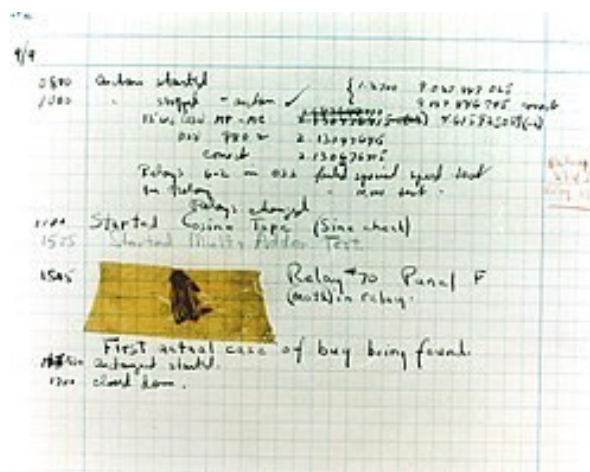 9/9
0800 Antan started
1000 " stopped - antan ✓ { 1.2700 9.037 847 025
9.037 846 995 correct
13"uc (032) MP - MC 4.615925059(-2)
033 PRO 2 2.130476415
correct 2.130676415
Relays 6-2 in 033 failed special speed test
in relay " test .
Relays changed
1100 Started Cosine Tape (Sine check)
1525 Started Mult+ Adder Test.
1545 Relay #70 Panel F
(moth) in relay.
First actual case of bug being found.
antangent started.
1700 closed down.